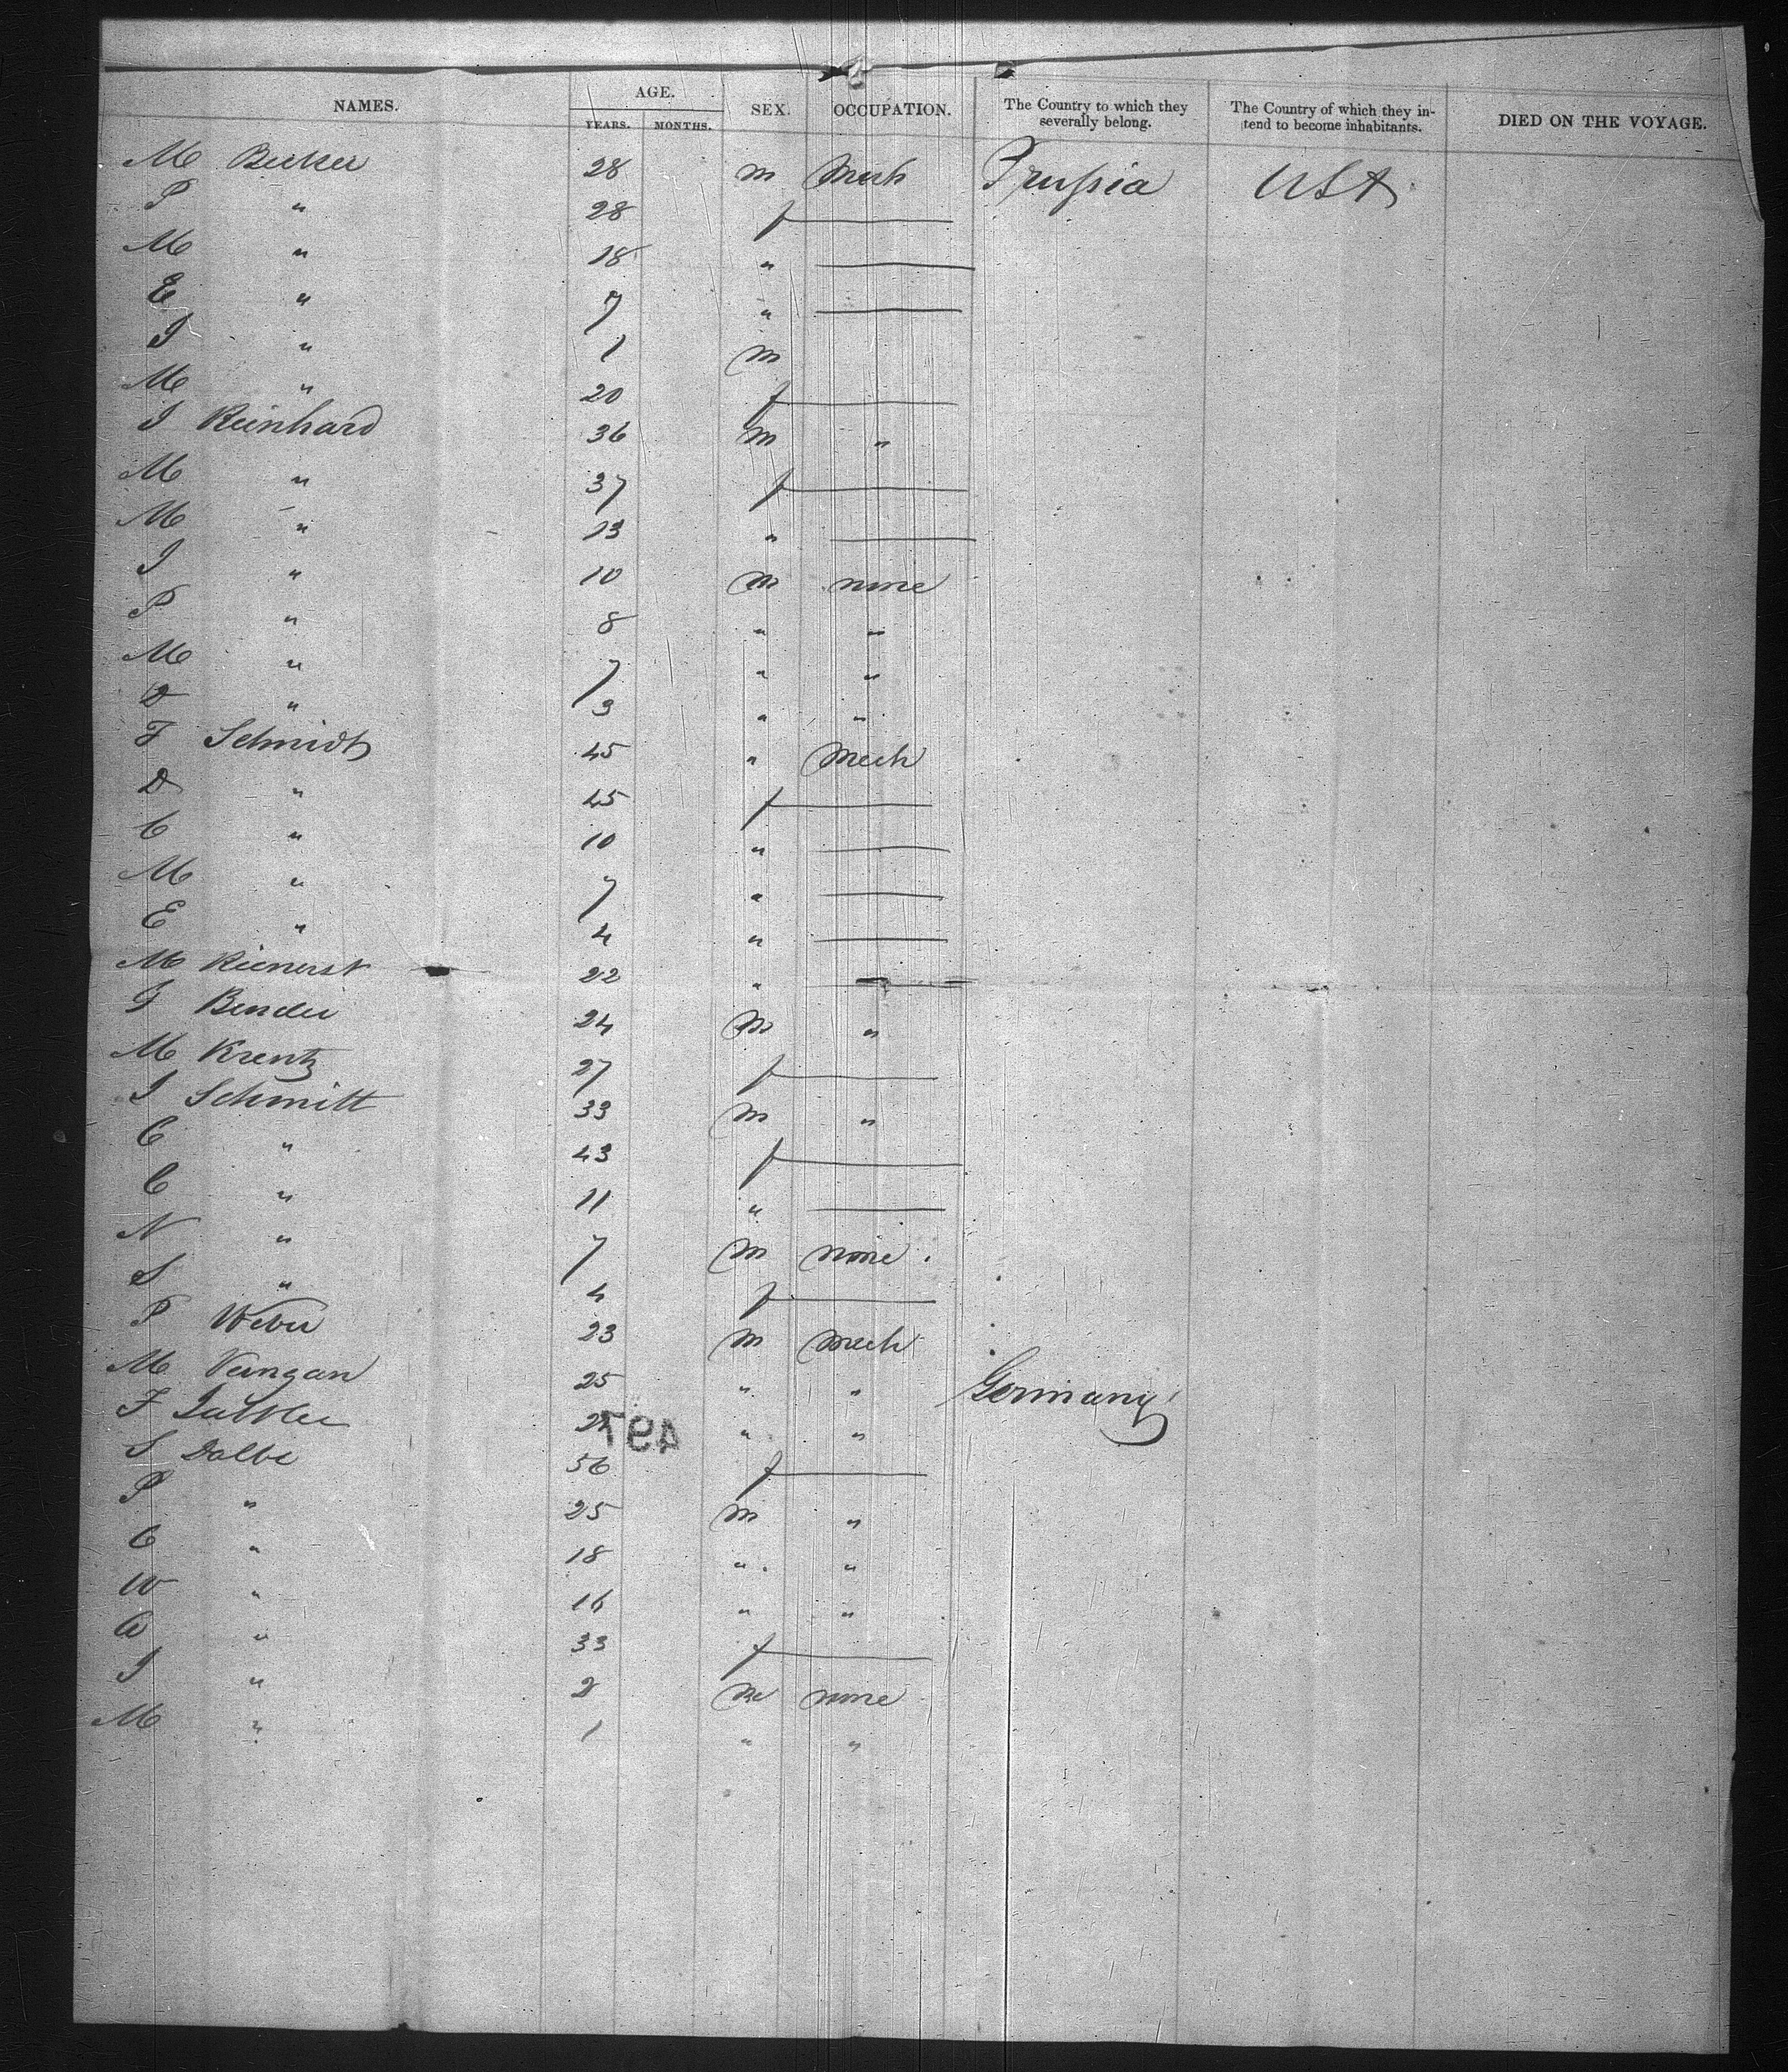 NAMES. AGE. YEARS. MONTHS. SEX. OCCUPATION. The Country to which they severally belong. The Country of which they intend to become inhabitants. DIED ON THE VOYAGE.
M Becker 28 m Mech Prussia USA
P " 28 f
M " 18 "
E " 7 "
J " 1 m
M " 20 f
J Reinhard 36 m "
M " 37 f
M " 13 "
J " 10 m none
P " 8 " "
M " 7 " "
D " 3 " "
F Schmidt 45 " Mech
D " 45 f
C " 10 "
M " 7 "
E " 4 "
M 22 "
J Bender 24 m "
M Krentz 27 f
J Schmitt 33 m "
C " 43 f
C " 11 "
N " 7 m none
S " 4 f
P Weber 23 m mech
M 25 " " Germany
F " "
S Dalbe 56 f
P " 25 m "
C " 18 " "
W " 16 " "
A " 33 f
J " 2 m none
M " 1 " "